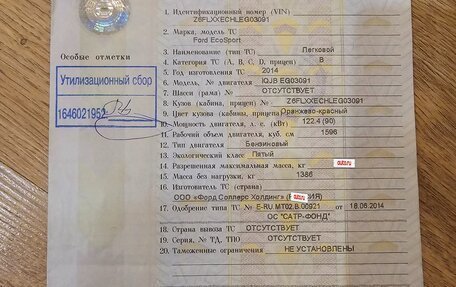 1. Идентификационный номер (VIN)
Z6FLXXECHLEG03091
2. Марка, модель ТС
Ford EcoSport
Особые отметки
3. Наименование (тип ТС) Легковой
4. Категория ТС (A, B, C, D, прицеп) B
5. Год изготовления ТС 2014
Утилизационный сбор
6. Модель, № двигателя IQJB EG03091
7. Шасси (рама) № ОТСУТСТВУЕТ
8. Кузов (кабина, прицеп) № Z6FLXXECHLEG03091
1646021952
9. Цвет кузова (кабины, прицепа) Оранжево-красный
10. Мощность двигателя, л. с. (кВт) 122.4 (90)
11. Рабочий объем двигателя, куб. см 1596
12. Тип двигателя Бензиновый
13. Экологический класс Пятый
14. Разрешенная максимальная масса, кг
auto.ru
15. Масса без нагрузки, кг 1386
16. Изготовитель ТС
ООО «Форд Соллерс Холдинг»
auto.ru
17. Одобрение типа ТС № E-RU.MT02.B.00921 от 18.06.2014
ОС "САТР-ФОНД"
18. Страна вывоза ТС ОТСУТСТВУЕТ
19. Серия, № ТД, ТПО ОТСУТСТВУЕТ
20. Таможенные ограничения НЕ УСТАНОВЛЕНЫ